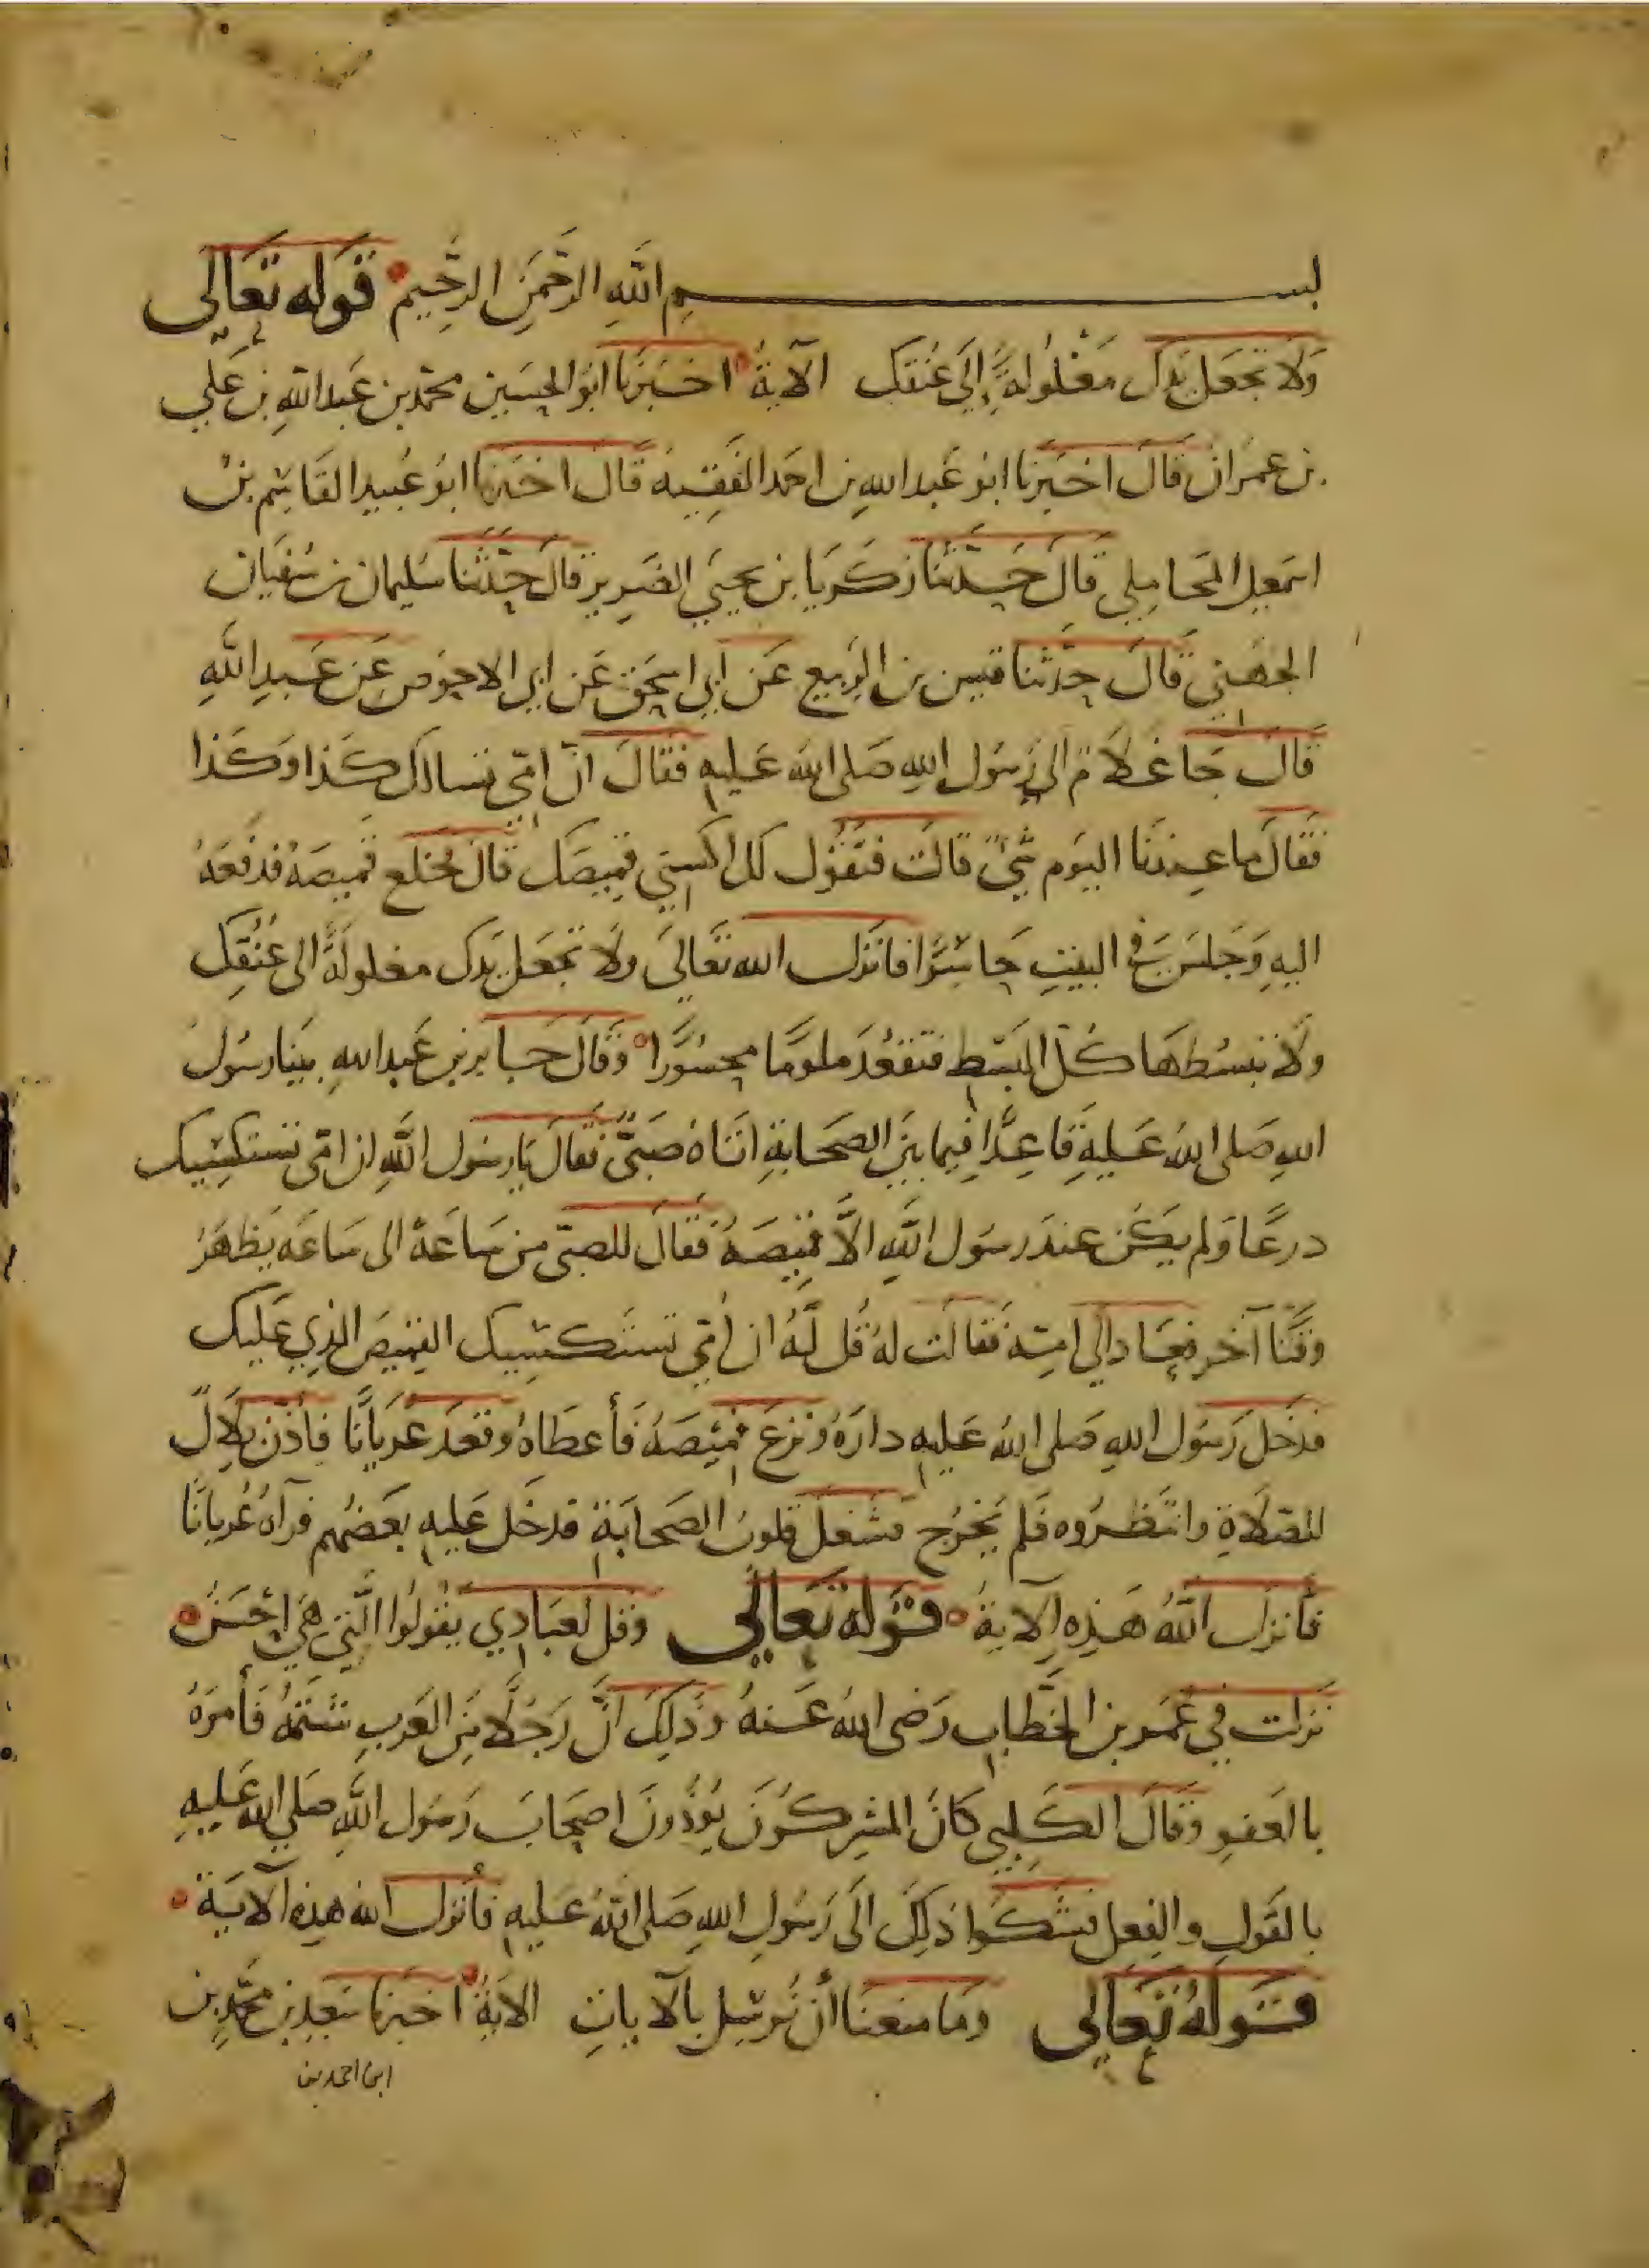 بسم الله الرحمن الرحيم قوله تعالى
وَلَا تجعَل يَدَك مَغْلُولةً إلَى عُنقك الآية اخبَرنا ابوُ الحسَين محمّد بن عَبد اللهِ بن عَلي
بن عمرَان قَالَ اخبَرنا ابوُ عَبد اللهِ بن احمَد الفَقِيه قَال اخبَرنا ابوُ عُبيد القَاسِم بنْ
اسمَعِيل المحَامِلي قَالَ حَدّثنَا زكَريَا بن يحيَي الضَرير قَالَ حَدّثنَا سُليمان بن سُفيَان
الجهَني قَالَ حَدّثنا قيس بن الرَبيع عَن أبي اسحَق عَن ابي الاحوَص عَن عَبدِ اللَّهِ
قَالَ جَا غلَامٌ الَى رَسُول اللهِ صَلى اللهُ عَليهِ فقَالَ انّ امّي تسالك كَذا وَكَذا
فَقَالَ ما عِندنَا اليوَم شَيْءٌ قَالَت فتَقوُل لك اكسني قميصَك قَالَ فخلَع قميصَهُ فدفَعَهُ
اليهِ وَجَلسَ في البيتِ حَاسِرًا فانزَل الله تعَالَى ولَا تجعَل يَدك مغلولَةً الى عُنُقِك
ولَا تبسُطهَا كُلّ البَسْط فتقعُدَ ملومًا محسُورًا وَقَالَ جَابر بن عَبد اللهِ بينَا رسُولُ
اللهِ صَلى اللهُ عَليهِ قَاعِدًا فِيما بين الصحَابةِ اتَاهُ صَبيٌّ فقَالَ يَا رسُول اللَّهِ ان امّي تستكسِيك
درعًا وَلم يكن عندَ رسُول اللَّهِ الاَّ قميصَهُ فقَالَ للصبيّ من سَاعَة الى سَاعَه يَظهَرُ
وقتًا آخر فعَادَ الي امّهِ فقَالَت لهُ قُل لَهُ ان امّي تستكسِيك القميصَ الذي عَليك
فدَخلَ رَسُول اللهِ صَلى اللهُ عَليهِ دارَهُ ونزعَ قميصَهُ فَأعطَاهُ وقعَدَ عُريَانًا فأذّن بلَالٌ
للصَلَاةِ وانتَظرُوه فَلم يخرُج فشغلَ قلوبُ الصَحابَةِ فدخَل عَليهِ بعَضهُم فرآهُ عُريانًا
فأنزَل اللَّهُ هَذِهِ الآيةُ قَوله تعَالى وقل لعبَادِي يقُولُوا الَّتي هي احْسَنُ
نَزلت في عُمَر بن الخطَّاب رَضى اللهُ عَنهُ وذلِكَ انَّ رَجُلًا مِنَ العَربِ شتمهُ فَأمَرهُ
بالعَفوِ وَقَالَ الكَلبي كَانَ المشركُون يُؤذُونَ اصحَابَ رَسُول اللَّهِ صَلي الله عَليهِ
بالقَولِ والفِعل فشكَوا ذلِكَ الَى رَسُولِ اللهِ صَلى اللهُ عَليهِ فأنزَل الله هذِه الآيَة
قَولَهُ تعَالى ومَا منعنَا أن نُرسِل بالآياتِ الآيَةُ اخبَرنا سَعِيد بن محمّد بن
ابن احمد بن